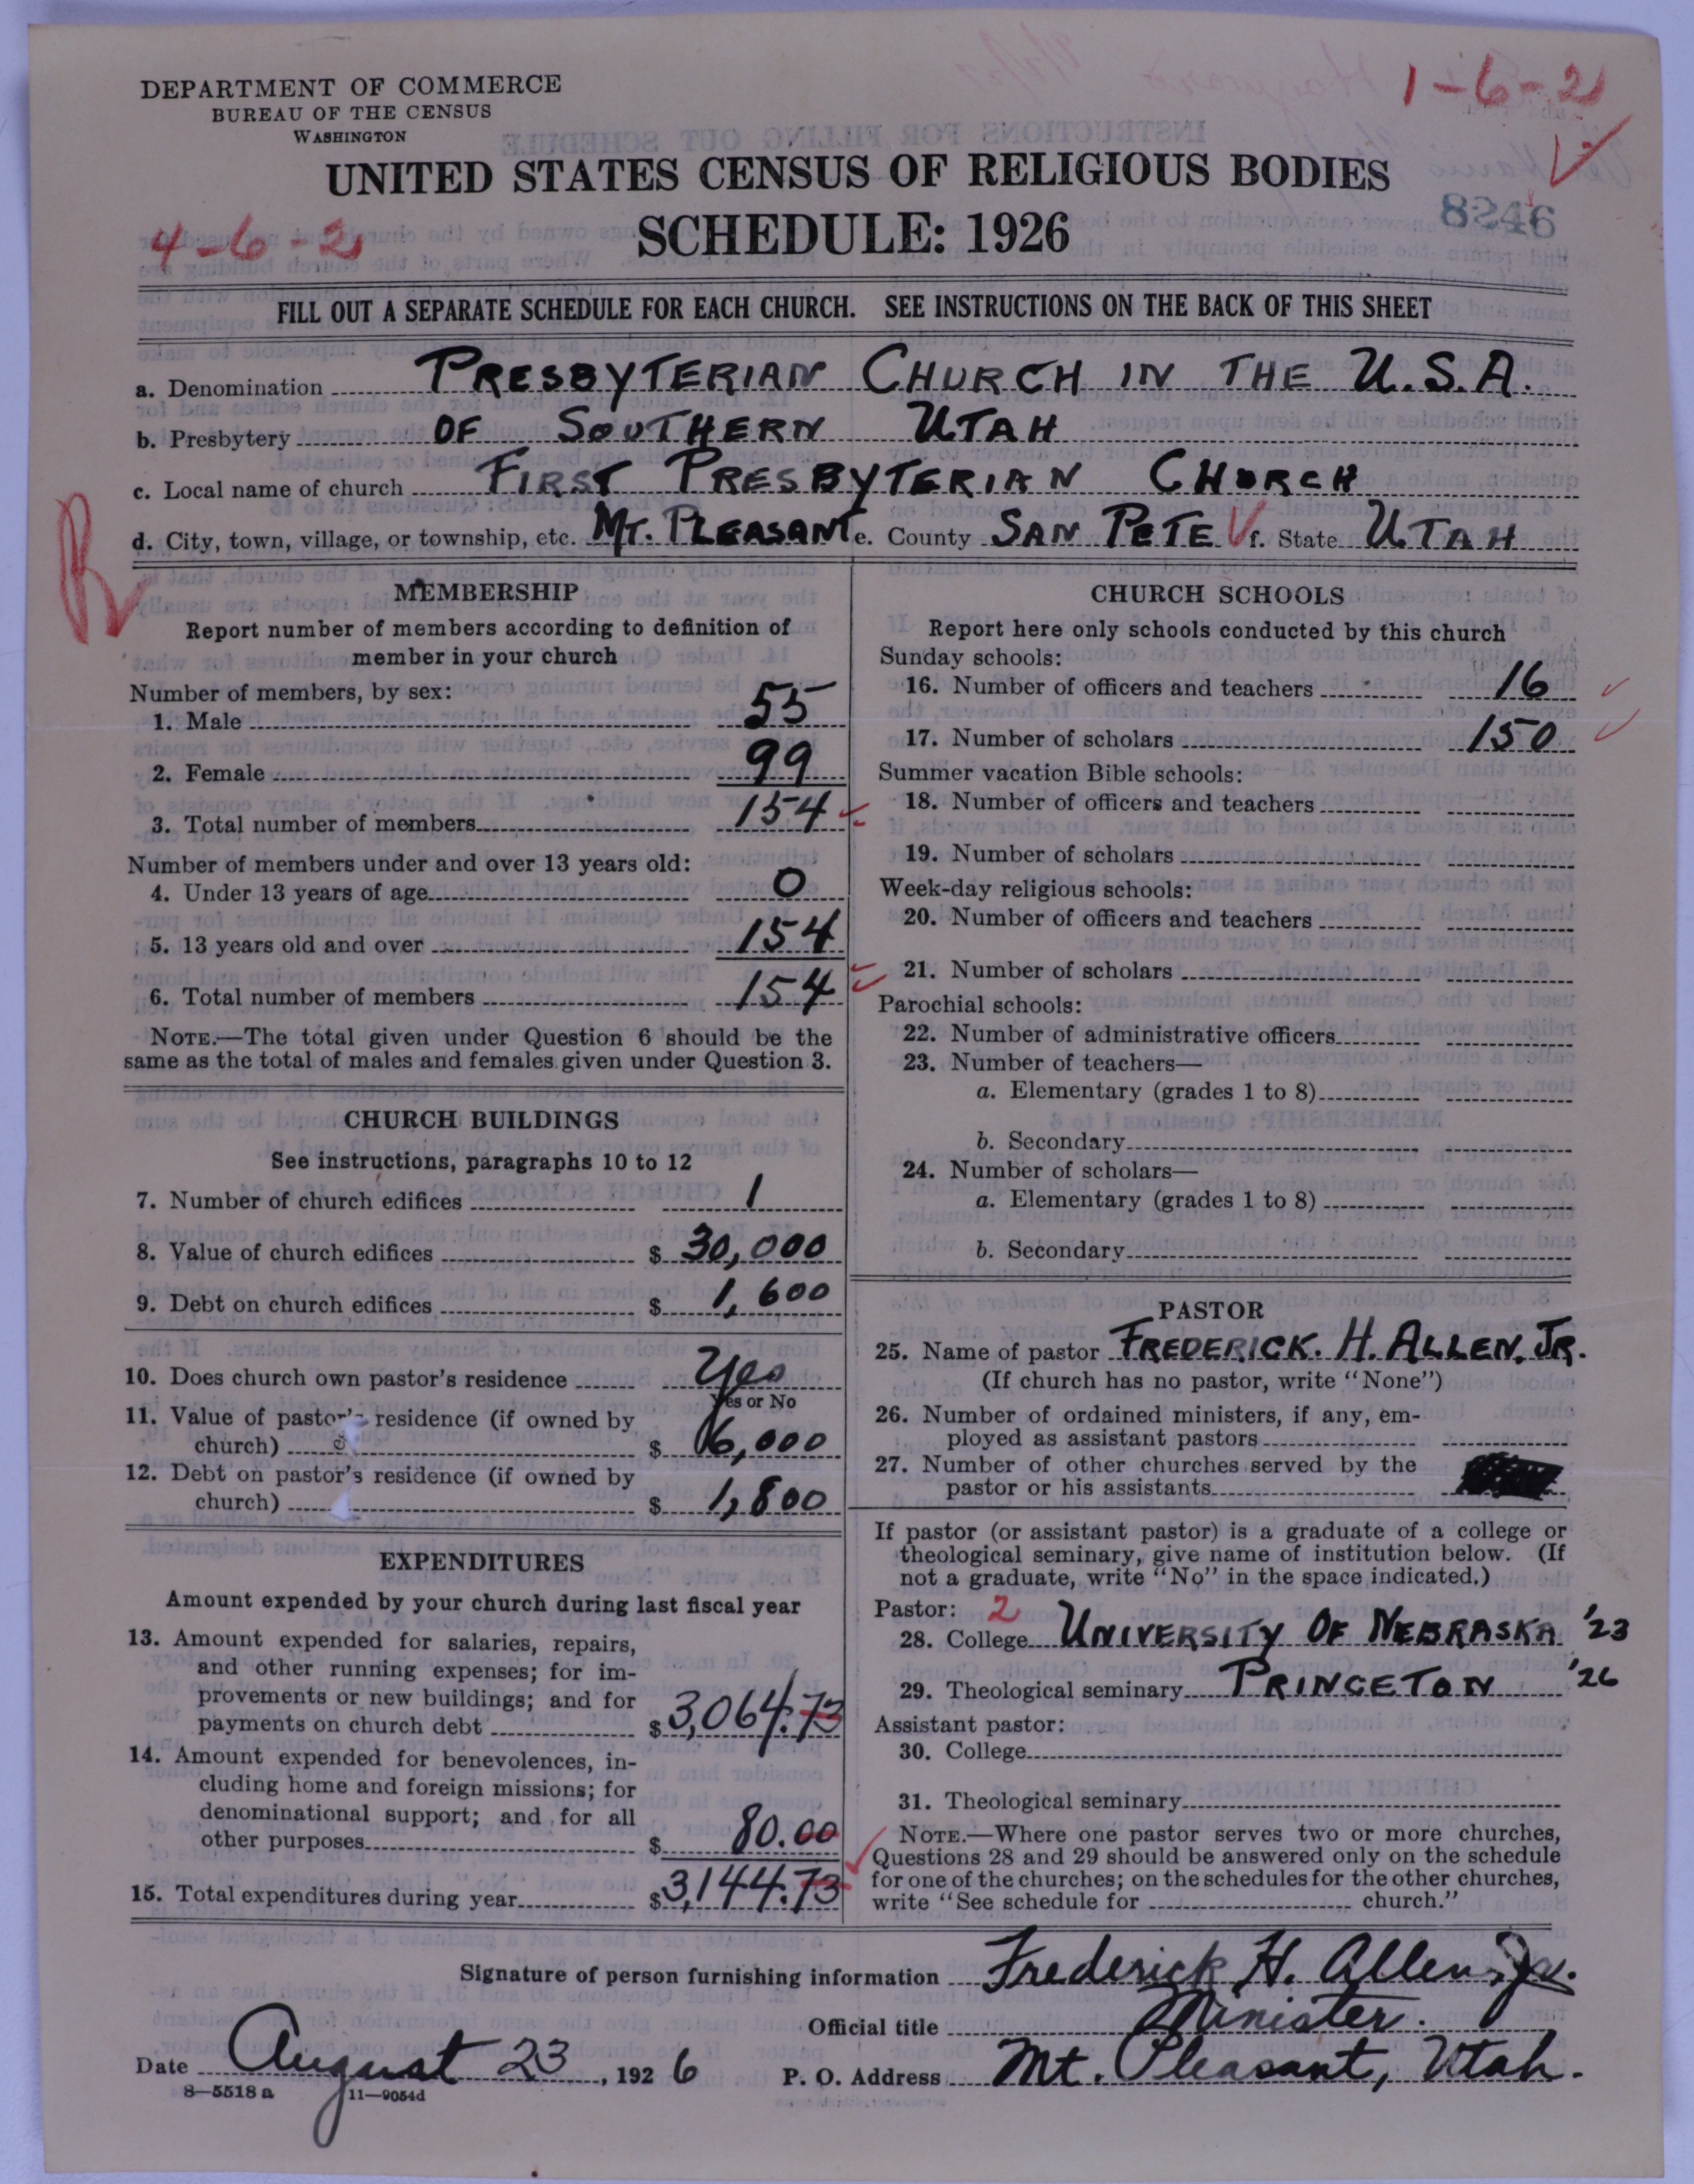 1-6-2
DEPARTMENT OF COMMERCE
BUREAU OF THE CENSUS
WASHINGTON
UNITED STATES CENSUS OF RELIGIOUS BODIES
8246
4-6-2
SCHEDULE: 1926
FILL OUT A SEPARATE SCHEDULE FOR EACH CHURCH. SEE INSTRUCTIONS ON THE BACK OF THIS SHEET
a. Denomination PRESBYTERIAN CHURCH IN THE U.S.A.
b. Presbytery OF SOUTHERN UTAH
c. Local name of church FIRST PRESBYTERIAN CHURCH
d. City, town, village, or township, etc. MT. PLEASANT e. County SAN PETE f. State UTAH
MEMBERSHIP
Report number of members according to definition of
member in your church
Number of members, by sex:
1. Male 55
2. Female 99
3. Total number of members 154
Number of members under and over 13 years old:
4. Under 13 years of age 0
5. 13 years old and over 154
6. Total number of members 154
NOTE.—The total given under Question 6 should be the
same as the total of males and females given under Question 3.
CHURCH BUILDINGS
See instructions, paragraphs 10 to 12
7. Number of church edifices 1
8. Value of church edifices $ 30,000
9. Debt on church edifices $ 1,600
10. Does church own pastor's residence Yes
Yes or No
11. Value of pastor's residence (if owned by
church) $ 6,000
12. Debt on pastor's residence (if owned by
church) $ 1,800
EXPENDITURES
Amount expended by your church during last fiscal year
13. Amount expended for salaries, repairs,
and other running expenses; for im-
provements or new buildings; and for
payments on church debt $ 3,064.73
14. Amount expended for benevolences, in-
cluding home and foreign missions; for
denominational support; and for all
other purposes $ 80.00
15. Total expenditures during year $ 3,144.73
CHURCH SCHOOLS
Report here only schools conducted by this church
Sunday schools:
16. Number of officers and teachers 16
17. Number of scholars 150
Summer vacation Bible schools:
18. Number of officers and teachers
19. Number of scholars
Week-day religious schools:
20. Number of officers and teachers
21. Number of scholars
Parochial schools:
22. Number of administrative officers
23. Number of teachers—
a. Elementary (grades 1 to 8)
b. Secondary
24. Number of scholars—
a. Elementary (grades 1 to 8)
b. Secondary
PASTOR
25. Name of pastor FREDERICK. H. ALLEN, JR.
(If church has no pastor, write "None")
26. Number of ordained ministers, if any, em-
ployed as assistant pastors
27. Number of other churches served by the
pastor or his assistants
If pastor (or assistant pastor) is a graduate of a college or
theological seminary, give name of institution below. (If
not a graduate, write "No" in the space indicated.)
Pastor: 2
28. College UNIVERSITY OF NEBRASKA '23
29. Theological seminary PRINCETON '26
Assistant pastor:
30. College
31. Theological seminary
NOTE.—Where one pastor serves two or more churches,
Questions 28 and 29 should be answered only on the schedule
for one of the churches; on the schedules for the other churches,
write "See schedule for church."
Signature of person furnishing information Frederick H. Allen, Jr.
Official title Minister.
Date August 23, 1926 P. O. Address Mt. Pleasant, Utah.
8—5518 a 11—9054d